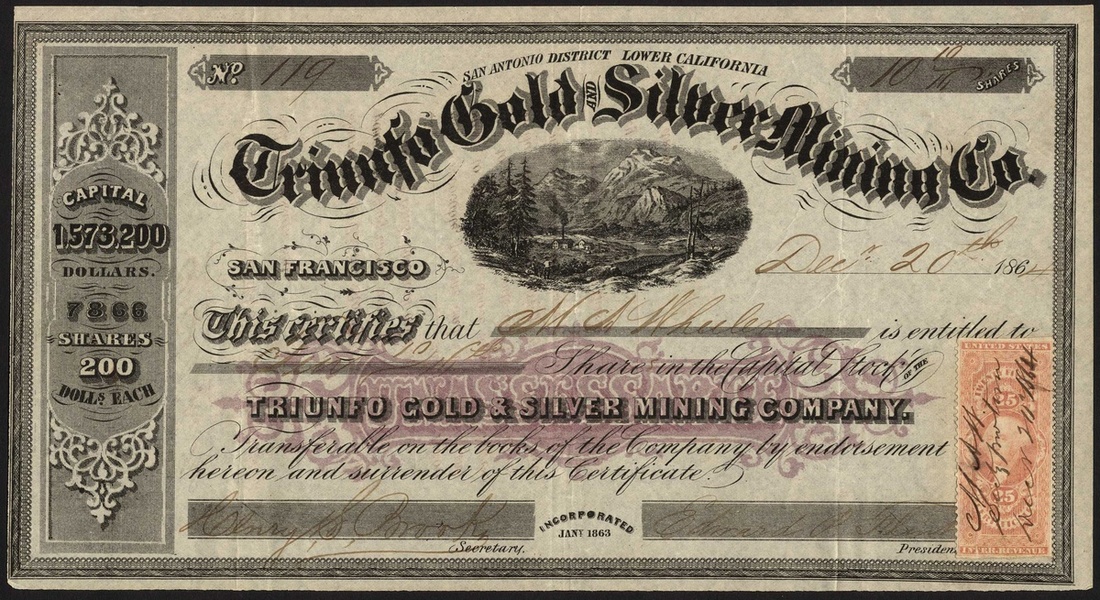 No. 119
SAN ANTONIO DISTRICT LOWER CALIFORNIA
10 SHARES
Triunfo Gold AND Silver Mining Co.
CAPITAL
1,573,200
DOLLARS.
7866
SHARES
200
DOLLS EACH
SAN FRANCISCO
Decr 20th 1864
This certifies that Wheeler is entitled to
Share in the Capital Stock OF THE
TRIUNFO GOLD & SILVER MINING COMPANY.
Transferable on the books of the Company by endorsement
hereon and surrender of this Certificate.
Henry S Brooks
Secretary.
INCORPORATED
JANY 1863
Presiden
UNITED STATES
25
25
INTER. REVENUE